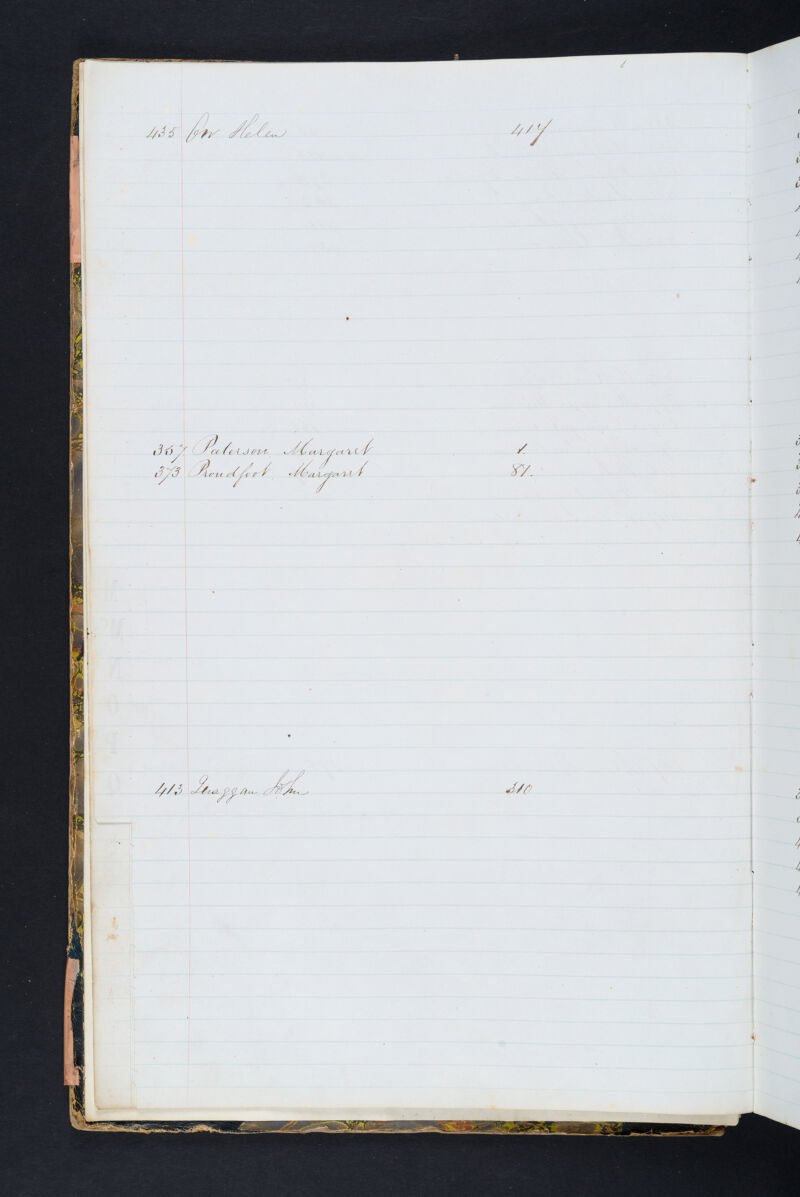 435 Orr Helen 417
357 Paterson Margaret 1.
373 Proudfoot Margaret 81.
413 Quaggan John 310